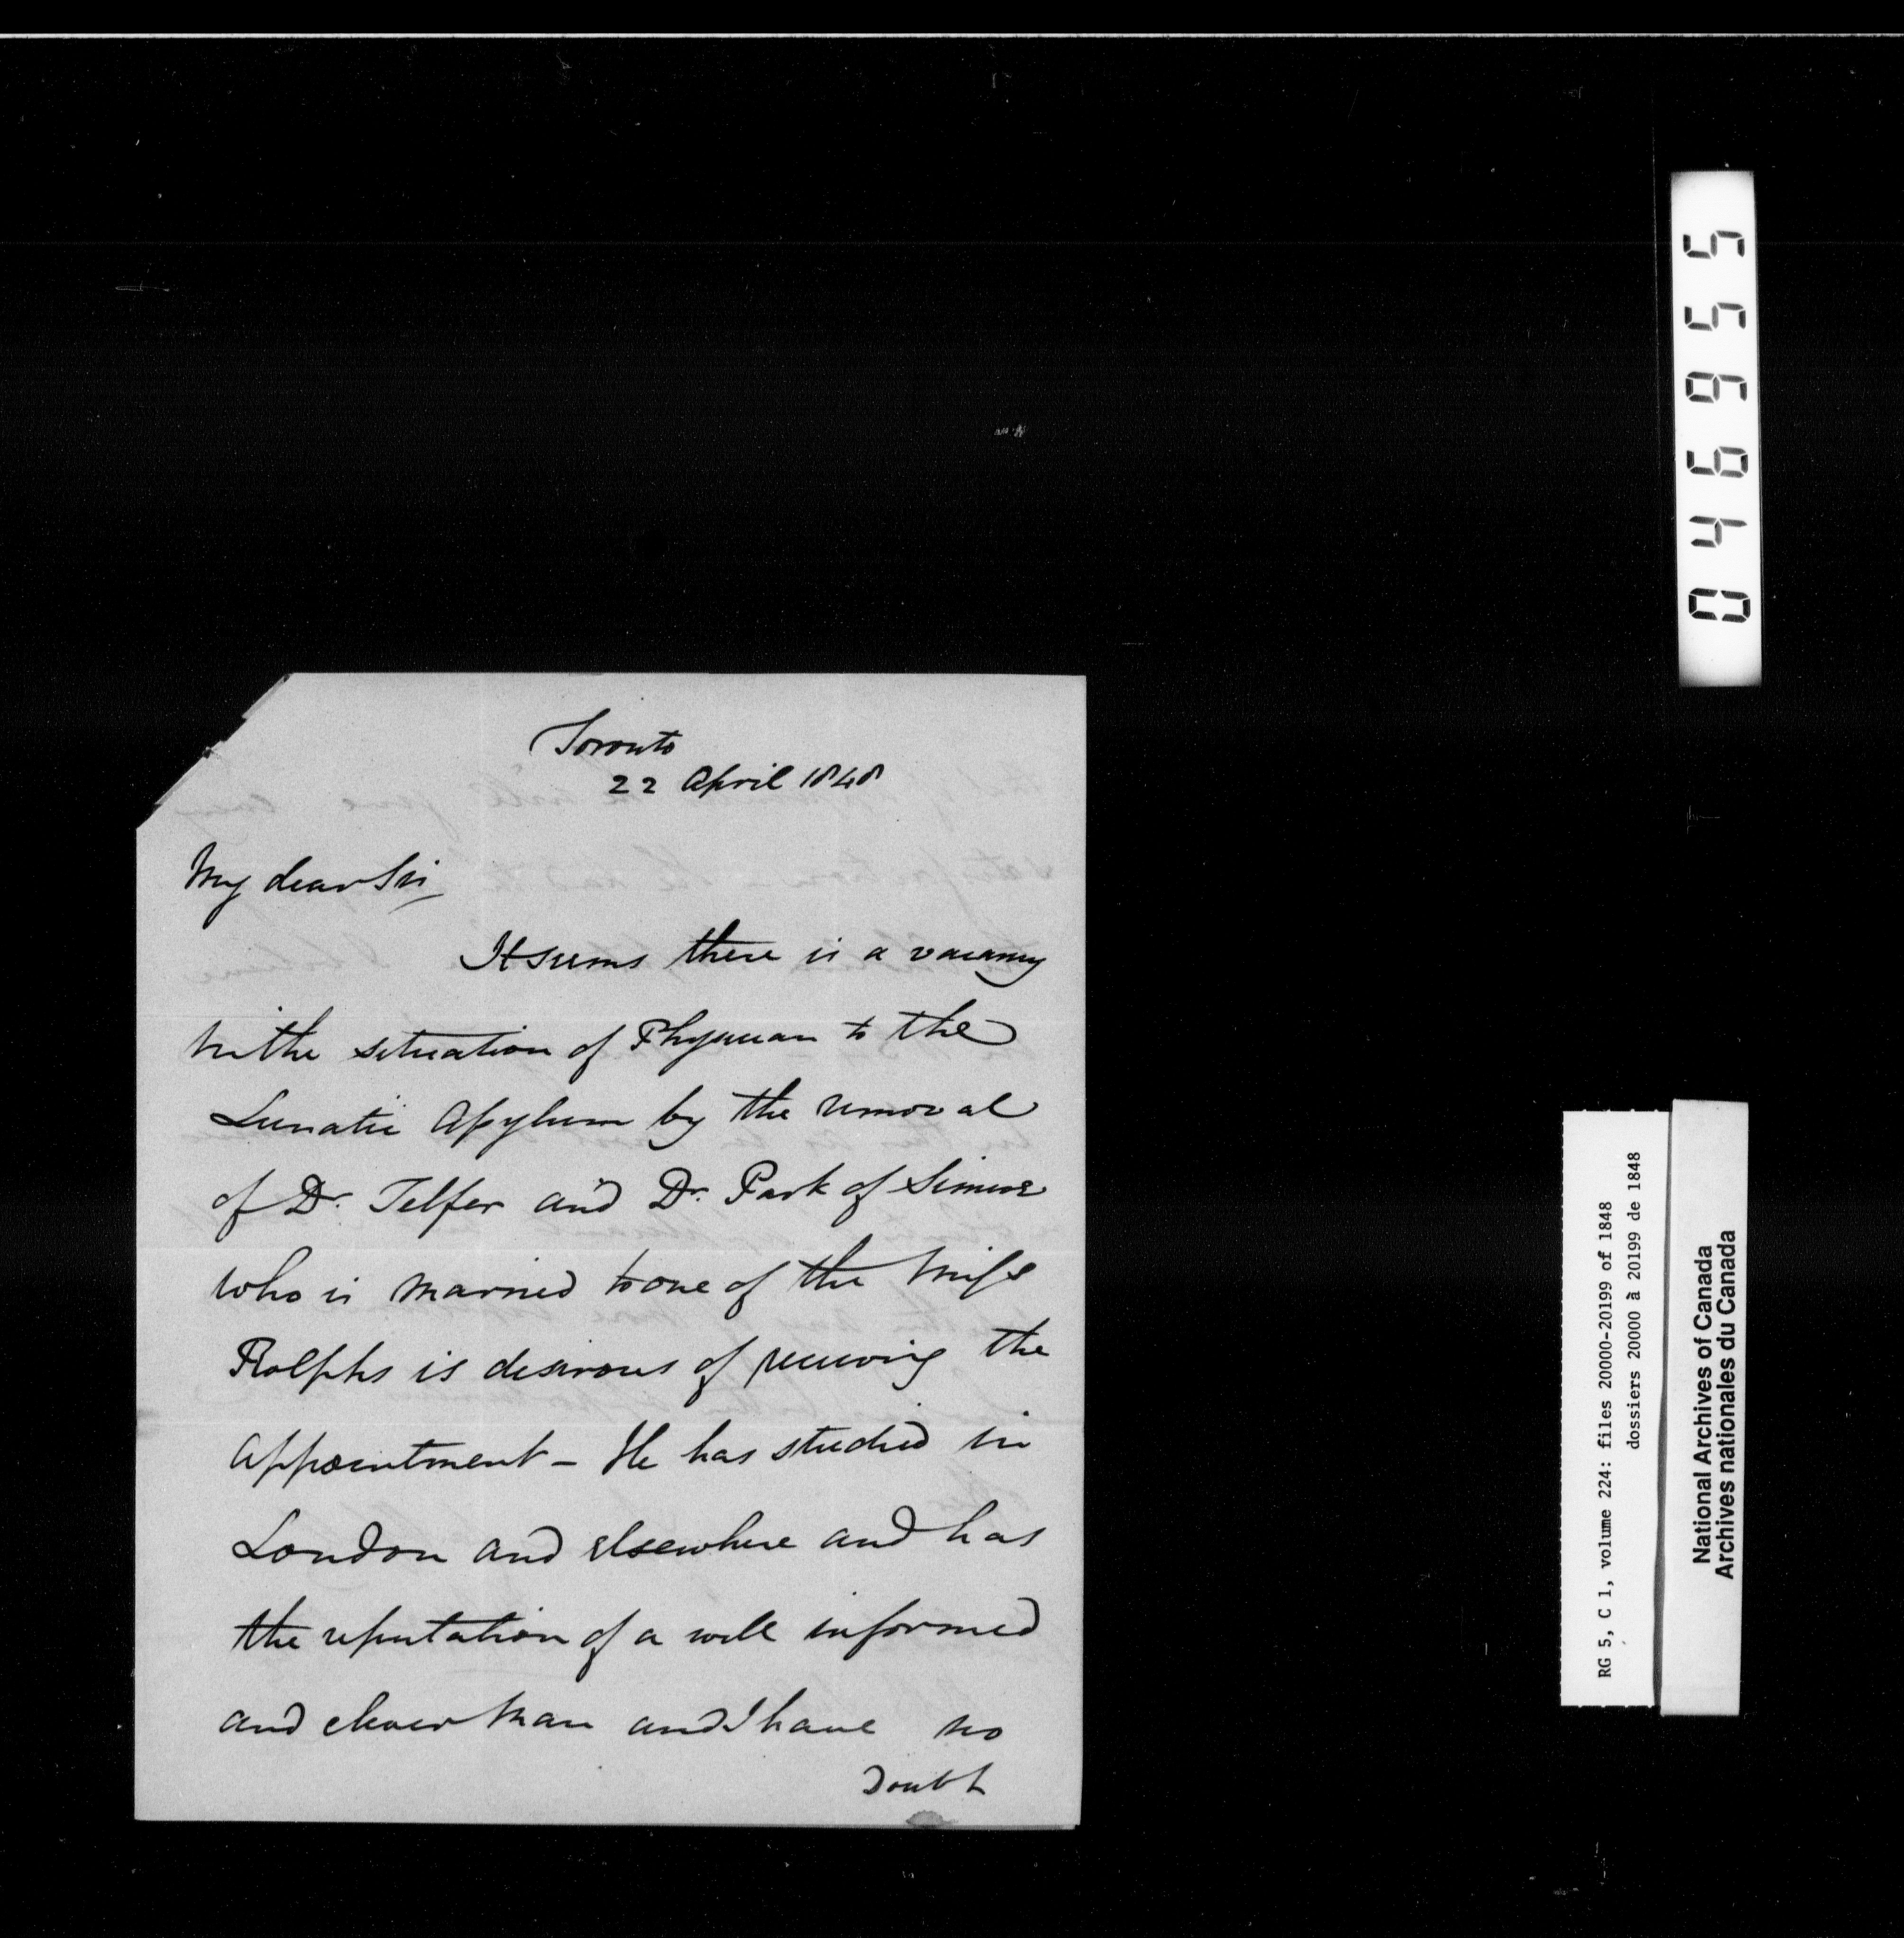 Toronto
22 April 1848
My dear Sir,
It seems there is a vacancy
in the situation of Physician to the
Lunatic Asylum by the removal
of Dr. Telfer and Dr. Park of Simcoe
who is married to one of the Miss
Rolphs is desirous of receiving the
appointment - He has studied in
London and elsewhere and has
the reputation of a well informed
and clever man and I have no
doubt
046955
RG 5, C 1, volume 224: files 20000-20199 of 1848
dossiers 20000 à 20199 de 1848
National Archives of Canada
Archives nationales du Canada